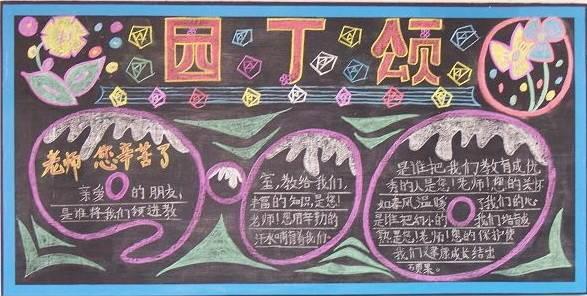 园丁颂
老师 您辛苦了
亲爱的朋友,
是谁将我们领进教
室,教给我们,
丰富的知识,是您!
老师!您用辛勤的
汗水哺育着我们。
是谁把我们教育成优
秀的人是您!老师!您的关怀
如春风,温暖了我们的心
是谁把幼小的我们培育成
就是您!老师!您的保护使
我们健康成长结出
硕果。